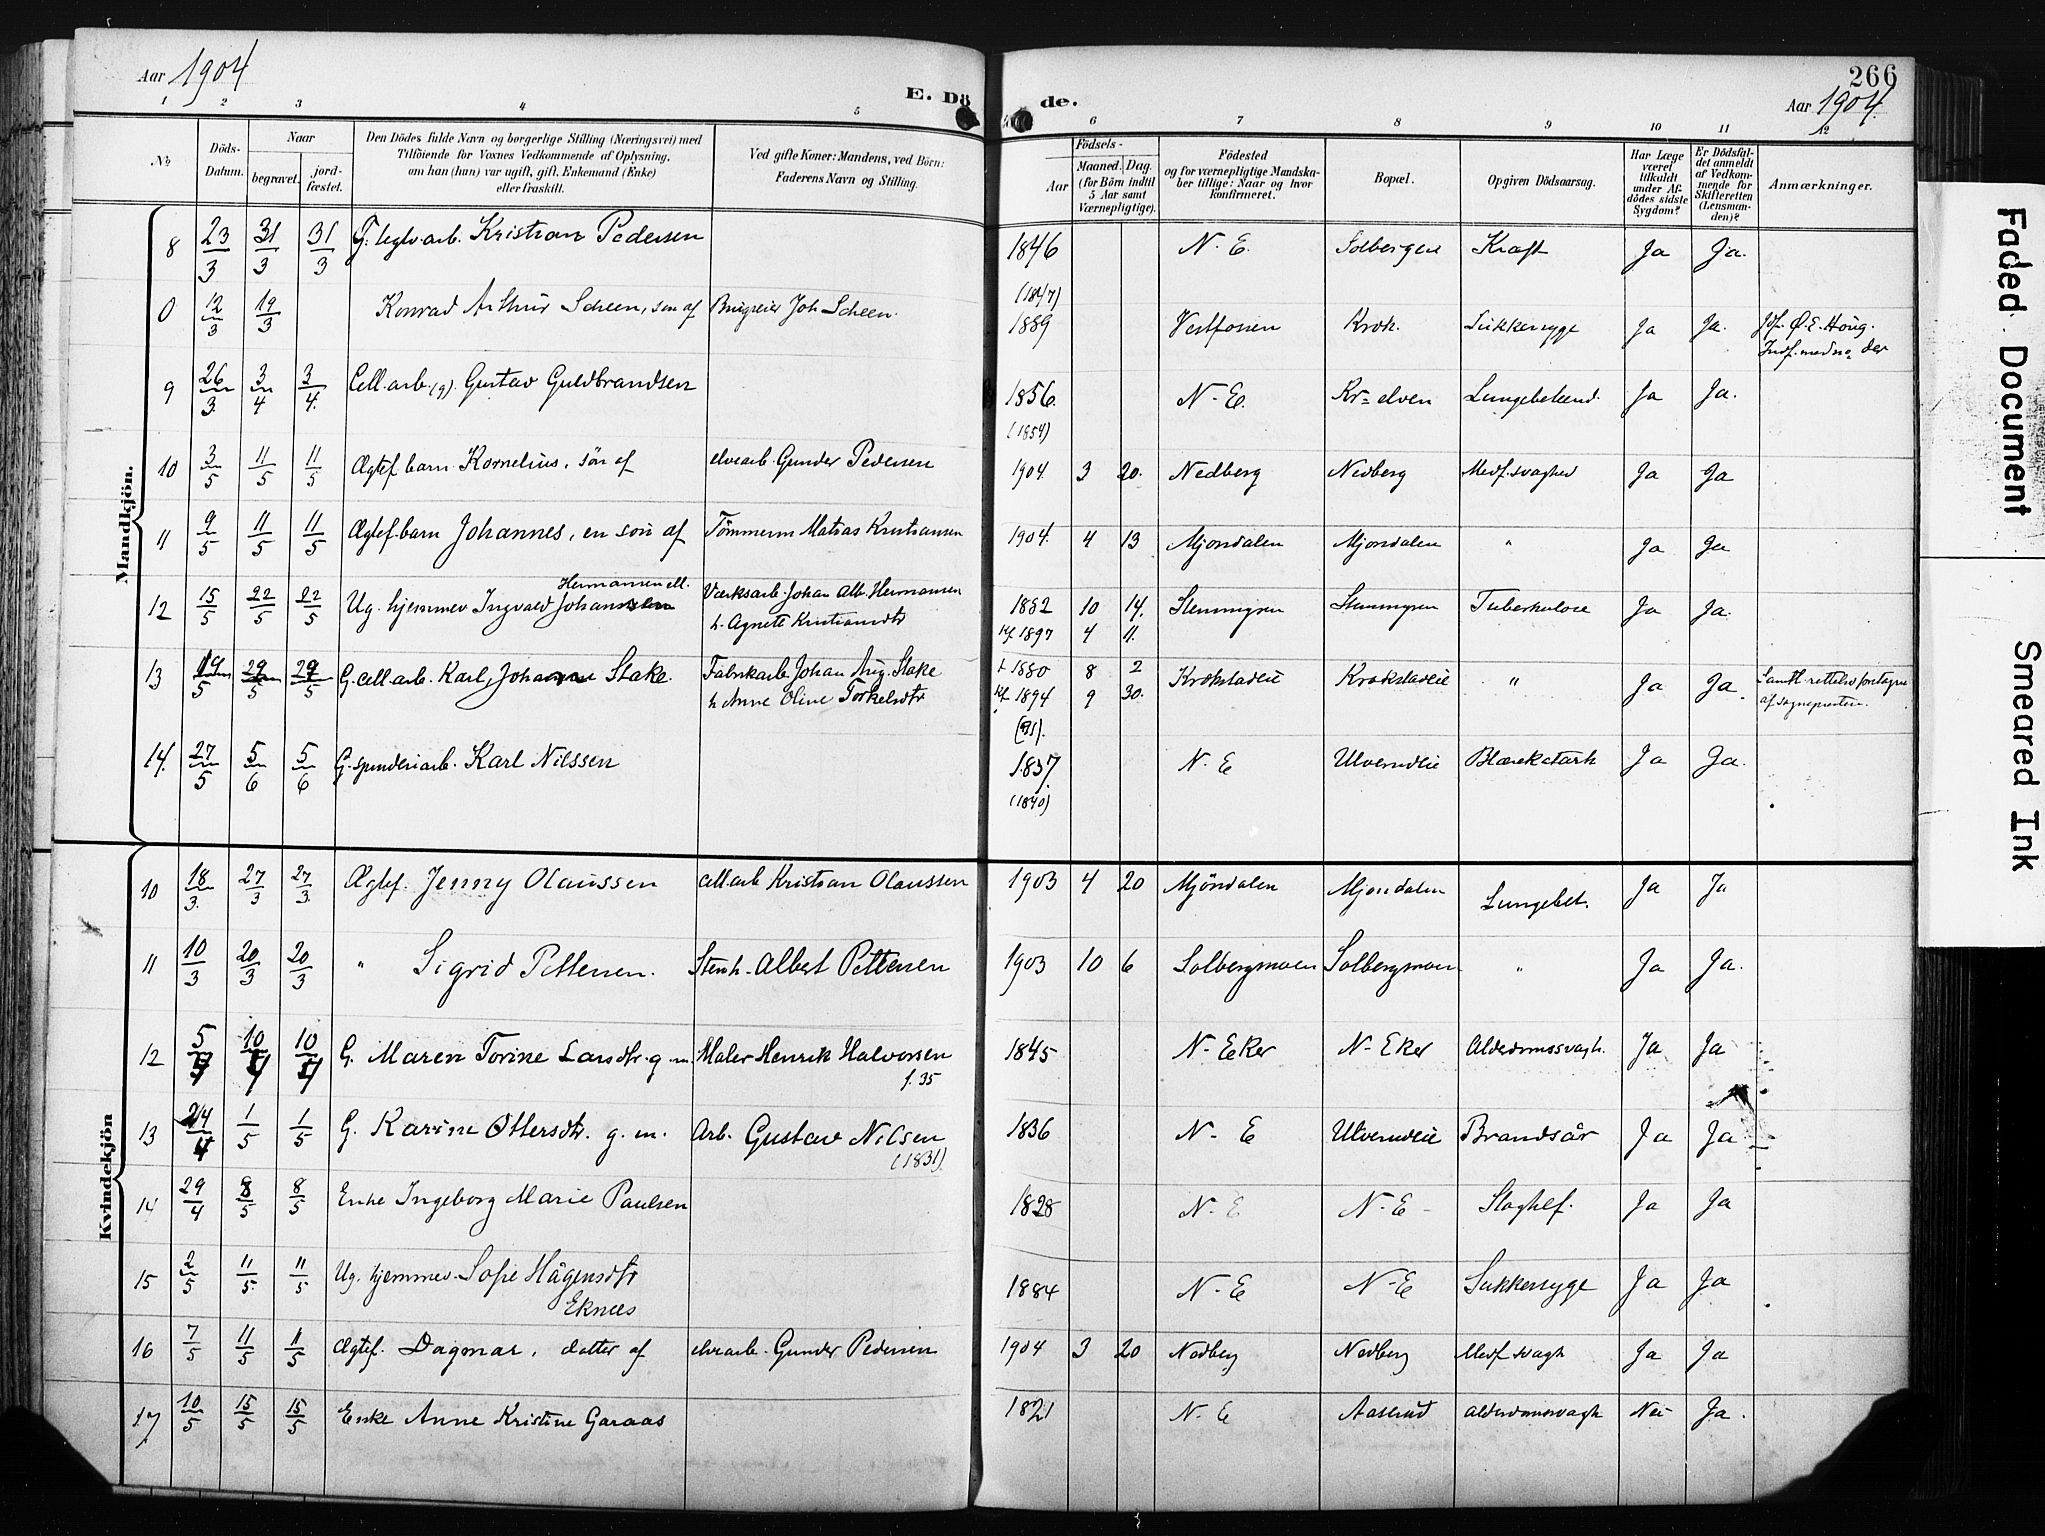 Aar 1904
E. Dö de.
266
Aar 1904.
1 2 3 4 5 6 7 8 9 10 11 12
No
Döds-Datum.
Naar
begravet.
jord-fæstet.
Den Dödes fulde Navn og borgerlige Stilling (Næringsvei) med
Tilföiende for Voxnes Vedkommende af Oplysning,
om han (hun) var ugift, gift, Enkemand (Enke)
eller fraskilt.
Ved gifte Koner: Mandens, ved Börn:
Faderens Navn og Stilling.
Födsels-
Aar
Maaned. Dag.
(for Börn indtil
5 Aar samt
Værnepligtige).
Födested
og for værnepligtige Mandska-
ber tillige: Naar og hvor
konfirmeret.
Bopæl.
Opgiven Dödsaarsag.
Har Læge
været
tilkaldt
under Af-
dödes sidste
Sygdom?
Er Dödsfal-
det anmeldt
af Vedkom-
mende for
Skifteretten
(Lensman-
den)?
Anmærkninger.
Mandkjön.
8 23/3 31/3 31/3 G. teglv.arb. Kristian Pedersen 1846 N. E. Solbergeie Kræft Ja Ja.
(1847)
0 12/3 19/3 Konrad Arthur Scheen, søn af Brugseier Joh Scheen. 1889 Vestfossen Krok. Sukkersyge Ja Ja.
9 26/3 3/4 3/4. Cell.arb. (g) Gustav Guldbrandsen 1856. N-E. Kr=elven Lungebetænd. Ja Ja.
(1854)
10 3/5 11/5 11/5 Ægtef barn Kornelius, søn af elvearb. Gunder Pedersen 1904. 3 20. Nedberg Nedberg Medf. svaghed Ja Ja
11 9/5 11/5 11/5 Ægtef. barn Johannes, en søn af Tømmerm Matias Kristiansen 1904. 4 13 Mjøndalen Mjøndalen " Ja Ja
Hermansen ell.
12 15/5 22/5 22/5 Ug. hjemmev Ingvald Johansen Værksarb. Johan Alb. Hermansen 1882 10 14. Stenmyren Stenmyren Tuberkulose Ja Ja.
h. Agnete Kristiansdtr kf. 1897 4 11.
13 19/5 29/5 29/5 G. cell.arb. Karl Johan Stake. Fabrikarb. Johan Aug. Stake f. 1880 8 2 Krokstadeie Krokstadeie " Ja Ja.
h Anne Oline Torkelsdtr kf. 1894 9 30.
14. 27/5 5/6 5/6 G. spinderiarb. Karl Nilssen 1837. N. E Ulverudeie Blærekatarh Ja Ja.
(1840)
Kvindekjön
10 18/3. 27/3 27/3. Ægtef. Jenny Olaussen cell.arb Kristian Olaussen 1903 4 20 Mjöndalen Mjøndalen Lungebet. Ja Ja
11 10/3 20/3 20/3 " Sigrid Pettersen. Stenh. Albert Pettersen 1903 10 6 Solbergmoen Solbergmoen " Ja Ja.
12 5/4 10/4 10/4 G. Maren Torine Larsdtr. g. m. Maler Henrik Halvorsen 1845 N-Eker N-Eker Alderdomssvagh. Ja Ja
f. 35
13 24/4 1/5 1/5 G. Karine Ottersdtr. g. m. Arb. Gustav Nilsen 1836 N-E Ulverudeie Brandsår Ja Ja
(1831)
14 29/4 8/5 8/5 Enke Ingeborg Marie Paulsen 1828 N-E N-E Slagtilf. Ja Ja
15 2/5 11/5. 11/5 Ug. hjemmev. Sofie Hågensdtr 1884 N-E N-E Sukkersyge Ja Ja
Eknæs
16 7/5 11/5 11/5 Ægtef. Dagmar, datter af elvearb. Gunder Pedersen 1904 3 20 Nedberg Nedberg Medf. svagh Ja Ja
17 10/5 15/5 15/5 Enke Anne Kristine Garaas 1821 N-E Aaserud Alderdomssvagh Nei Ja.
Faded Document
Smeared Ink